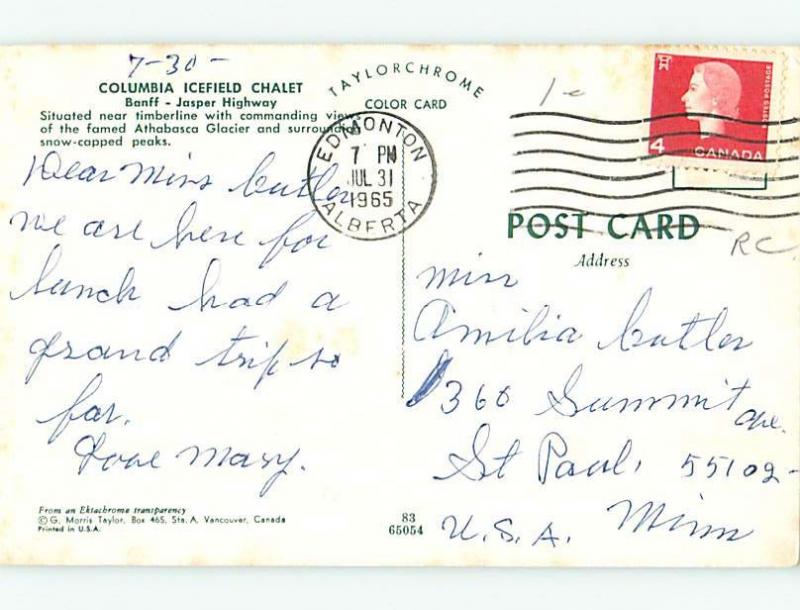 7-30-
COLUMBIA ICEFIELD CHALET
Banff - Jasper Highway
Situated near timberline with commanding views
of the famed Athabasca Glacier and surrounding
snow-capped peaks.
Dear Miss Cutler
we are here for
lunch had a
grand trip so
far.
Love Mary.
From an Ektachrome transparency
© G. Morris Taylor, Box 465, Sta. A, Vancouver, Canada
Printed in U.S.A.
TAYLORCHROME
COLOR CARD
EDMONTON
7 PM
JUL 31
1965
ALBERTA
83
65054
1 c
POSTES POSTAGE
4
CANADA
POST CARD
RC
Address
Miss
Amilia Cutler
360 Summit Ave.
St Paul, 55102-
U.S.A. Minn